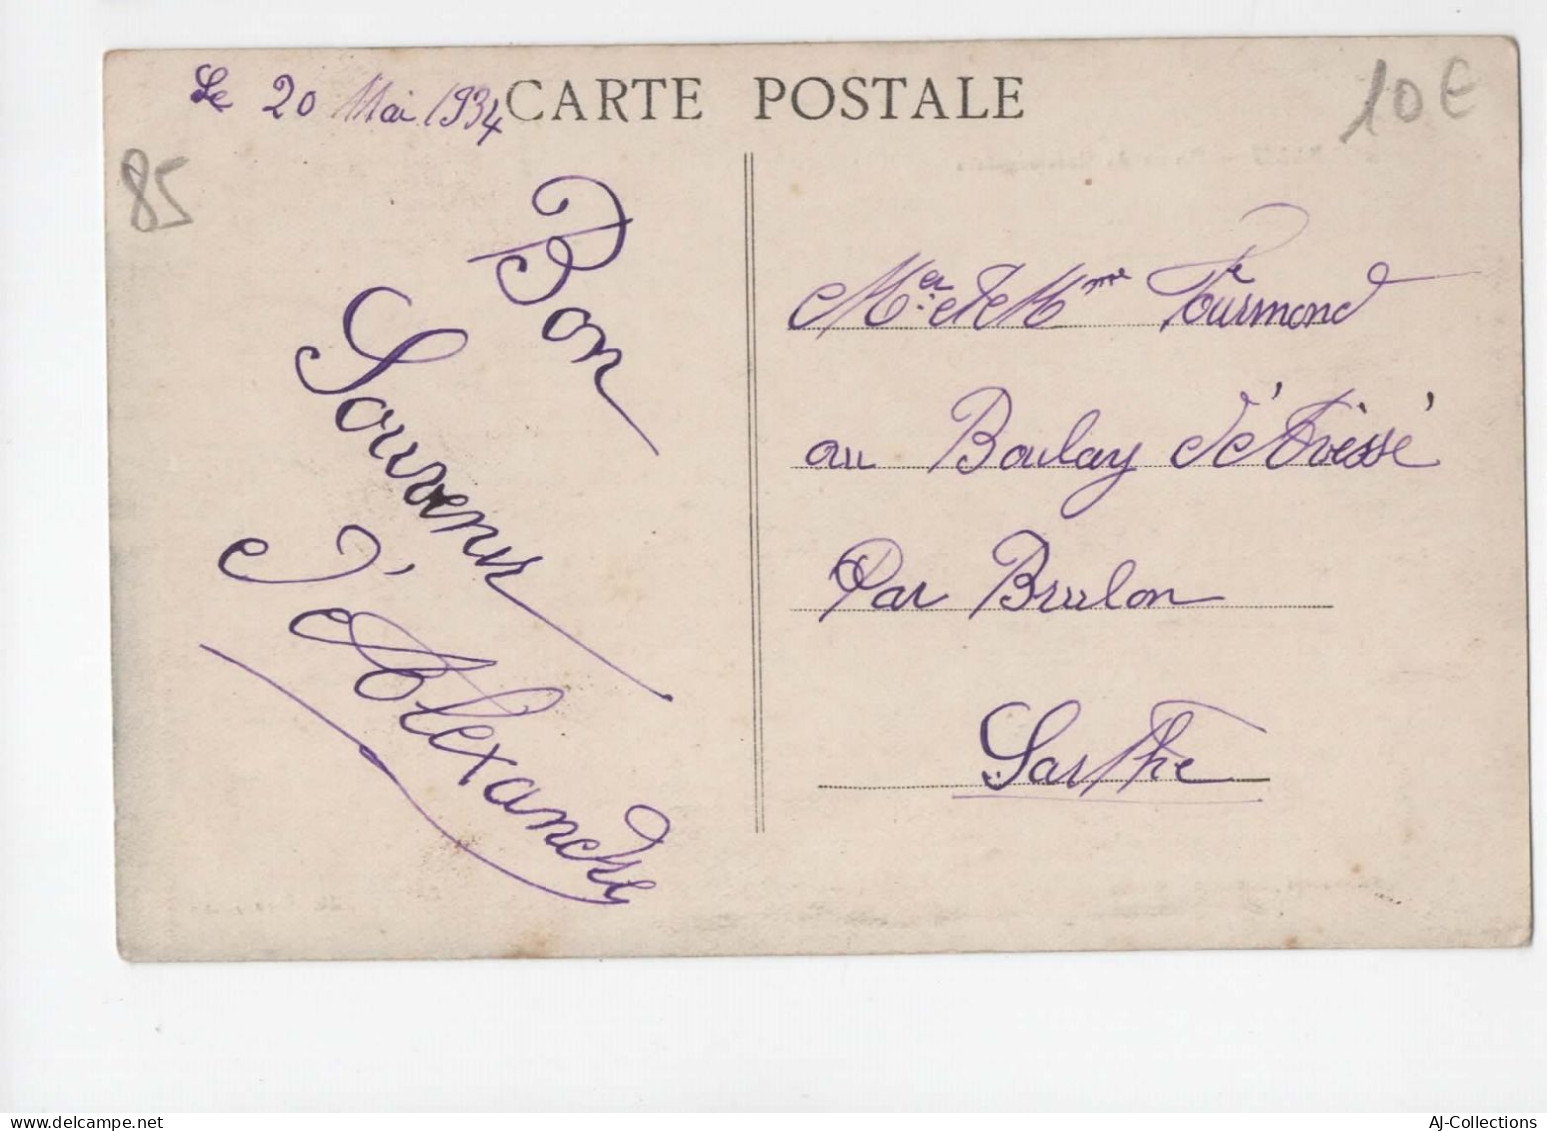 Le 20 Mai 1934
CARTE POSTALE
10€
85
Bon
Souvenir
d'Alexandre
Mer et Mme Fourmond
au Boulay d'Avessé
Par Brulon
Sarthe
AJ-Collections